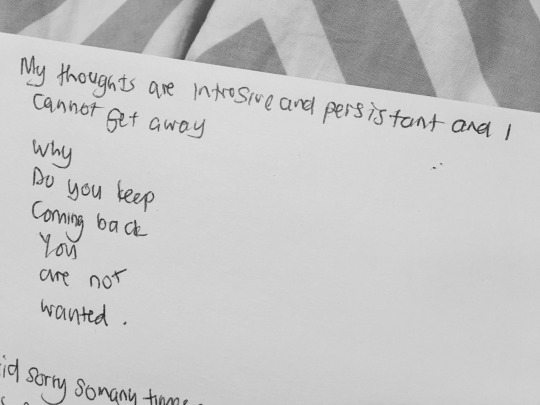 My thoughts are introsive and persistant and I
cannot get away
Why
Do you keep
Coming back
You
are not
wanted.
id sorry somany times